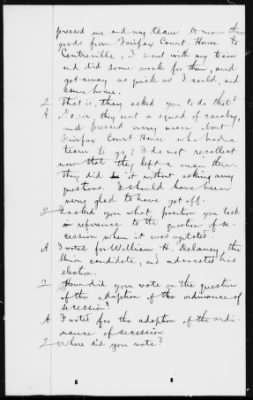 pressed me and my team to move their
goods from Fairfax Court House to
Centreville, I went with my team
and did some work for them, and
got away as quick as I could, and
came home.
Q That is, they asked you to do that?
A No sir, they sent a squad of cavalry,
and pressed every man about
Fairfax Court House who had a
team to go; I do not recollect
now that they left a man there
they did it without asking any
questions. I should have been
very glad to have got off.
Q I asked you what position you took
in reference to the question of se-
cession when it was agitated
A I voted for William H. Delaney the
Union candidate, and advocated his
election.
Q How did you vote on the question
of the adoption of the ordinance of
secession?
A I voted for the adoption of the ordi-
nance of secession
Q Where did you vote?